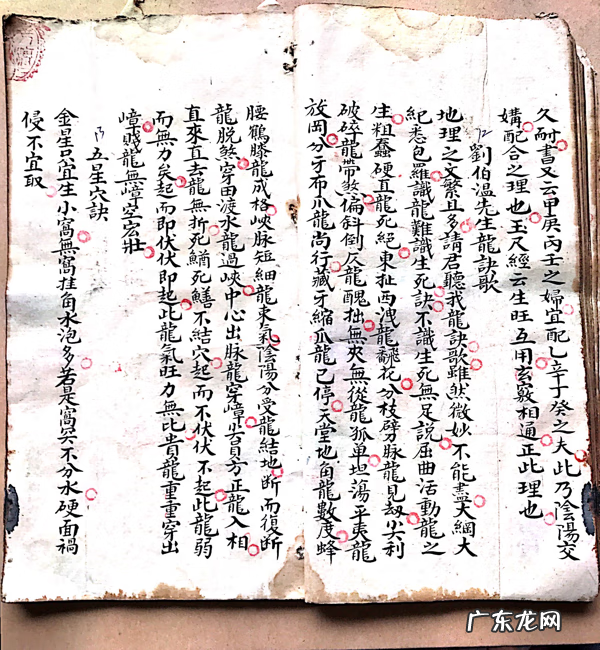 久耐書又云甲庚丙壬之婦宜配乙辛丁癸之夫此乃陰陽交
媾配合之理也玉尺經云生旺互用玄竅相通正此理也
劉伯温先生龍訣歌
地理之文繁且多請君聽我龍訣歌雖然微妙不能盡大綱大
紀悉包羅識龍難識生死訣不識生死無足説屈曲活動龍之
生粗蠢硬直龍死絕東扯西洩龍翻花分枝劈脉龍見劫尖利
破碎龍帶煞偏斜倒仄龍醜拙無夾無從龍孤单坦蕩平夷龍
放岡分牙布爪龍尚行藏牙縮爪龍已停天堂地角龍數度蜂
腰鶴膝龍成格峽脉短細龍束氣陰陽分受龍結地断而復断
龍脱煞穿田渡水龍過峽中心出脉龍穿嶂百方正龍入相
直來直去龍無折死鰌死鱔不結穴起而不伏伏不起此龍弱
而無力矣起而即伏伏即起此龍氣旺力無比貴龍重重穿出
嶂賤龍無嶂空宏壯
五星穴訣
金星只宜生小窩無窩挂角水泡多若是窩冥不分水硬面禍
侵不宜取
广东龙网